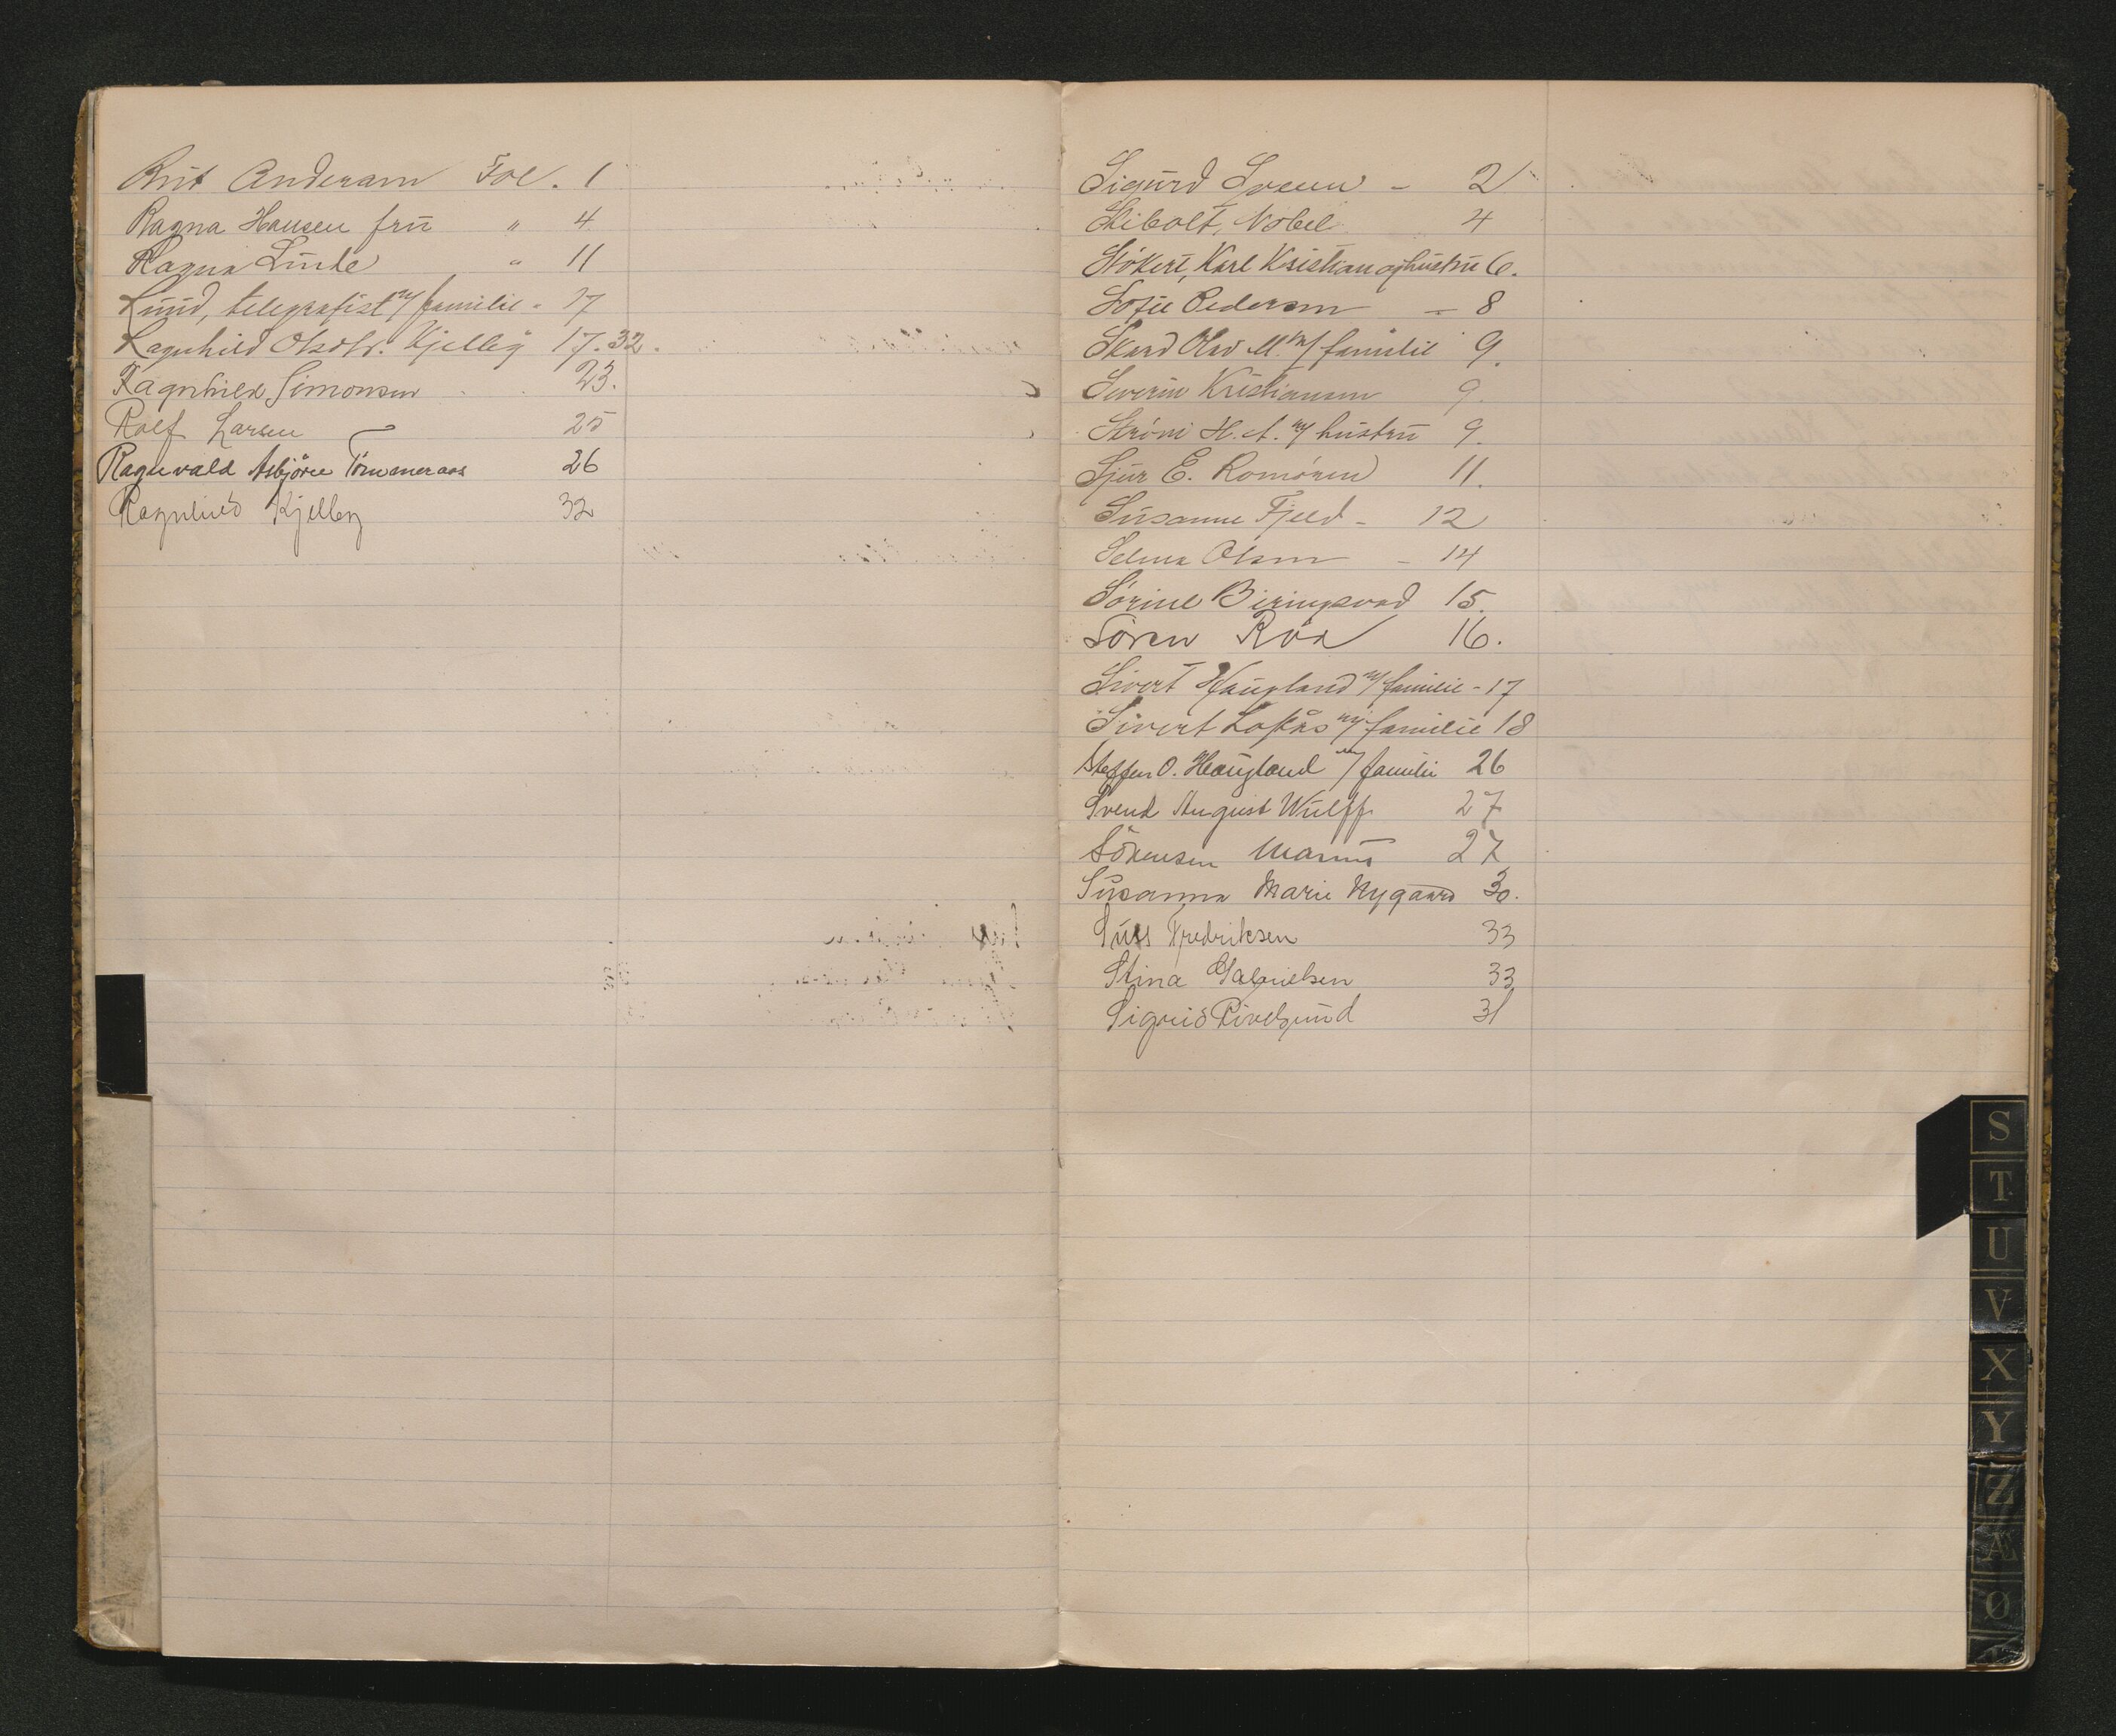 Rut Andersen Fol. 1
Ragna Hansen fru " 4
Ragna Linde " 11
Ruud, telegrafist m/ familie - 17
Ragnhild Olsdtr. Kjelby 17. 32.
Ragnhild Simonsen 23.
Rolf Larsen 25
Ragnvald Asbjörn Tömmeraas 26
Ragnhild Kjelby 32
Sigurd Svenn - 2
Stibolt, Nobel 4
Stökert, Karl Kristian og hustru 6.
Sofie Pedersen - 8
Skard Olav M. m/ familie 9.
Severin Kristiansen 9.
Ström H. A. m/ hustru 9.
Sjur E. Romören 11.
Susanne Fjeld - 12
Selma Olsen - 14
Sörine Biringsvad 15.
Sören Röd 16.
Sivert Haugland m/ familie - 17
Sivert Lofkås m/ familie 18
Steffen O. Haugland m/ familie 26
Svend August Wulff 27
Sörensen Marius 27
Susanna Marie Nygaard 30.
Suss Fredriksen 33
Stina Gabrielsen 33
Sigrid 31
S
T
U
V
X
Y
Z
Æ
Ø